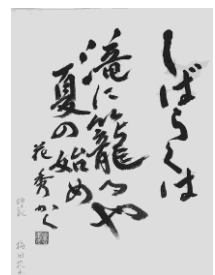 しばらくは
滝に籠るや
夏の始め
花秀かく